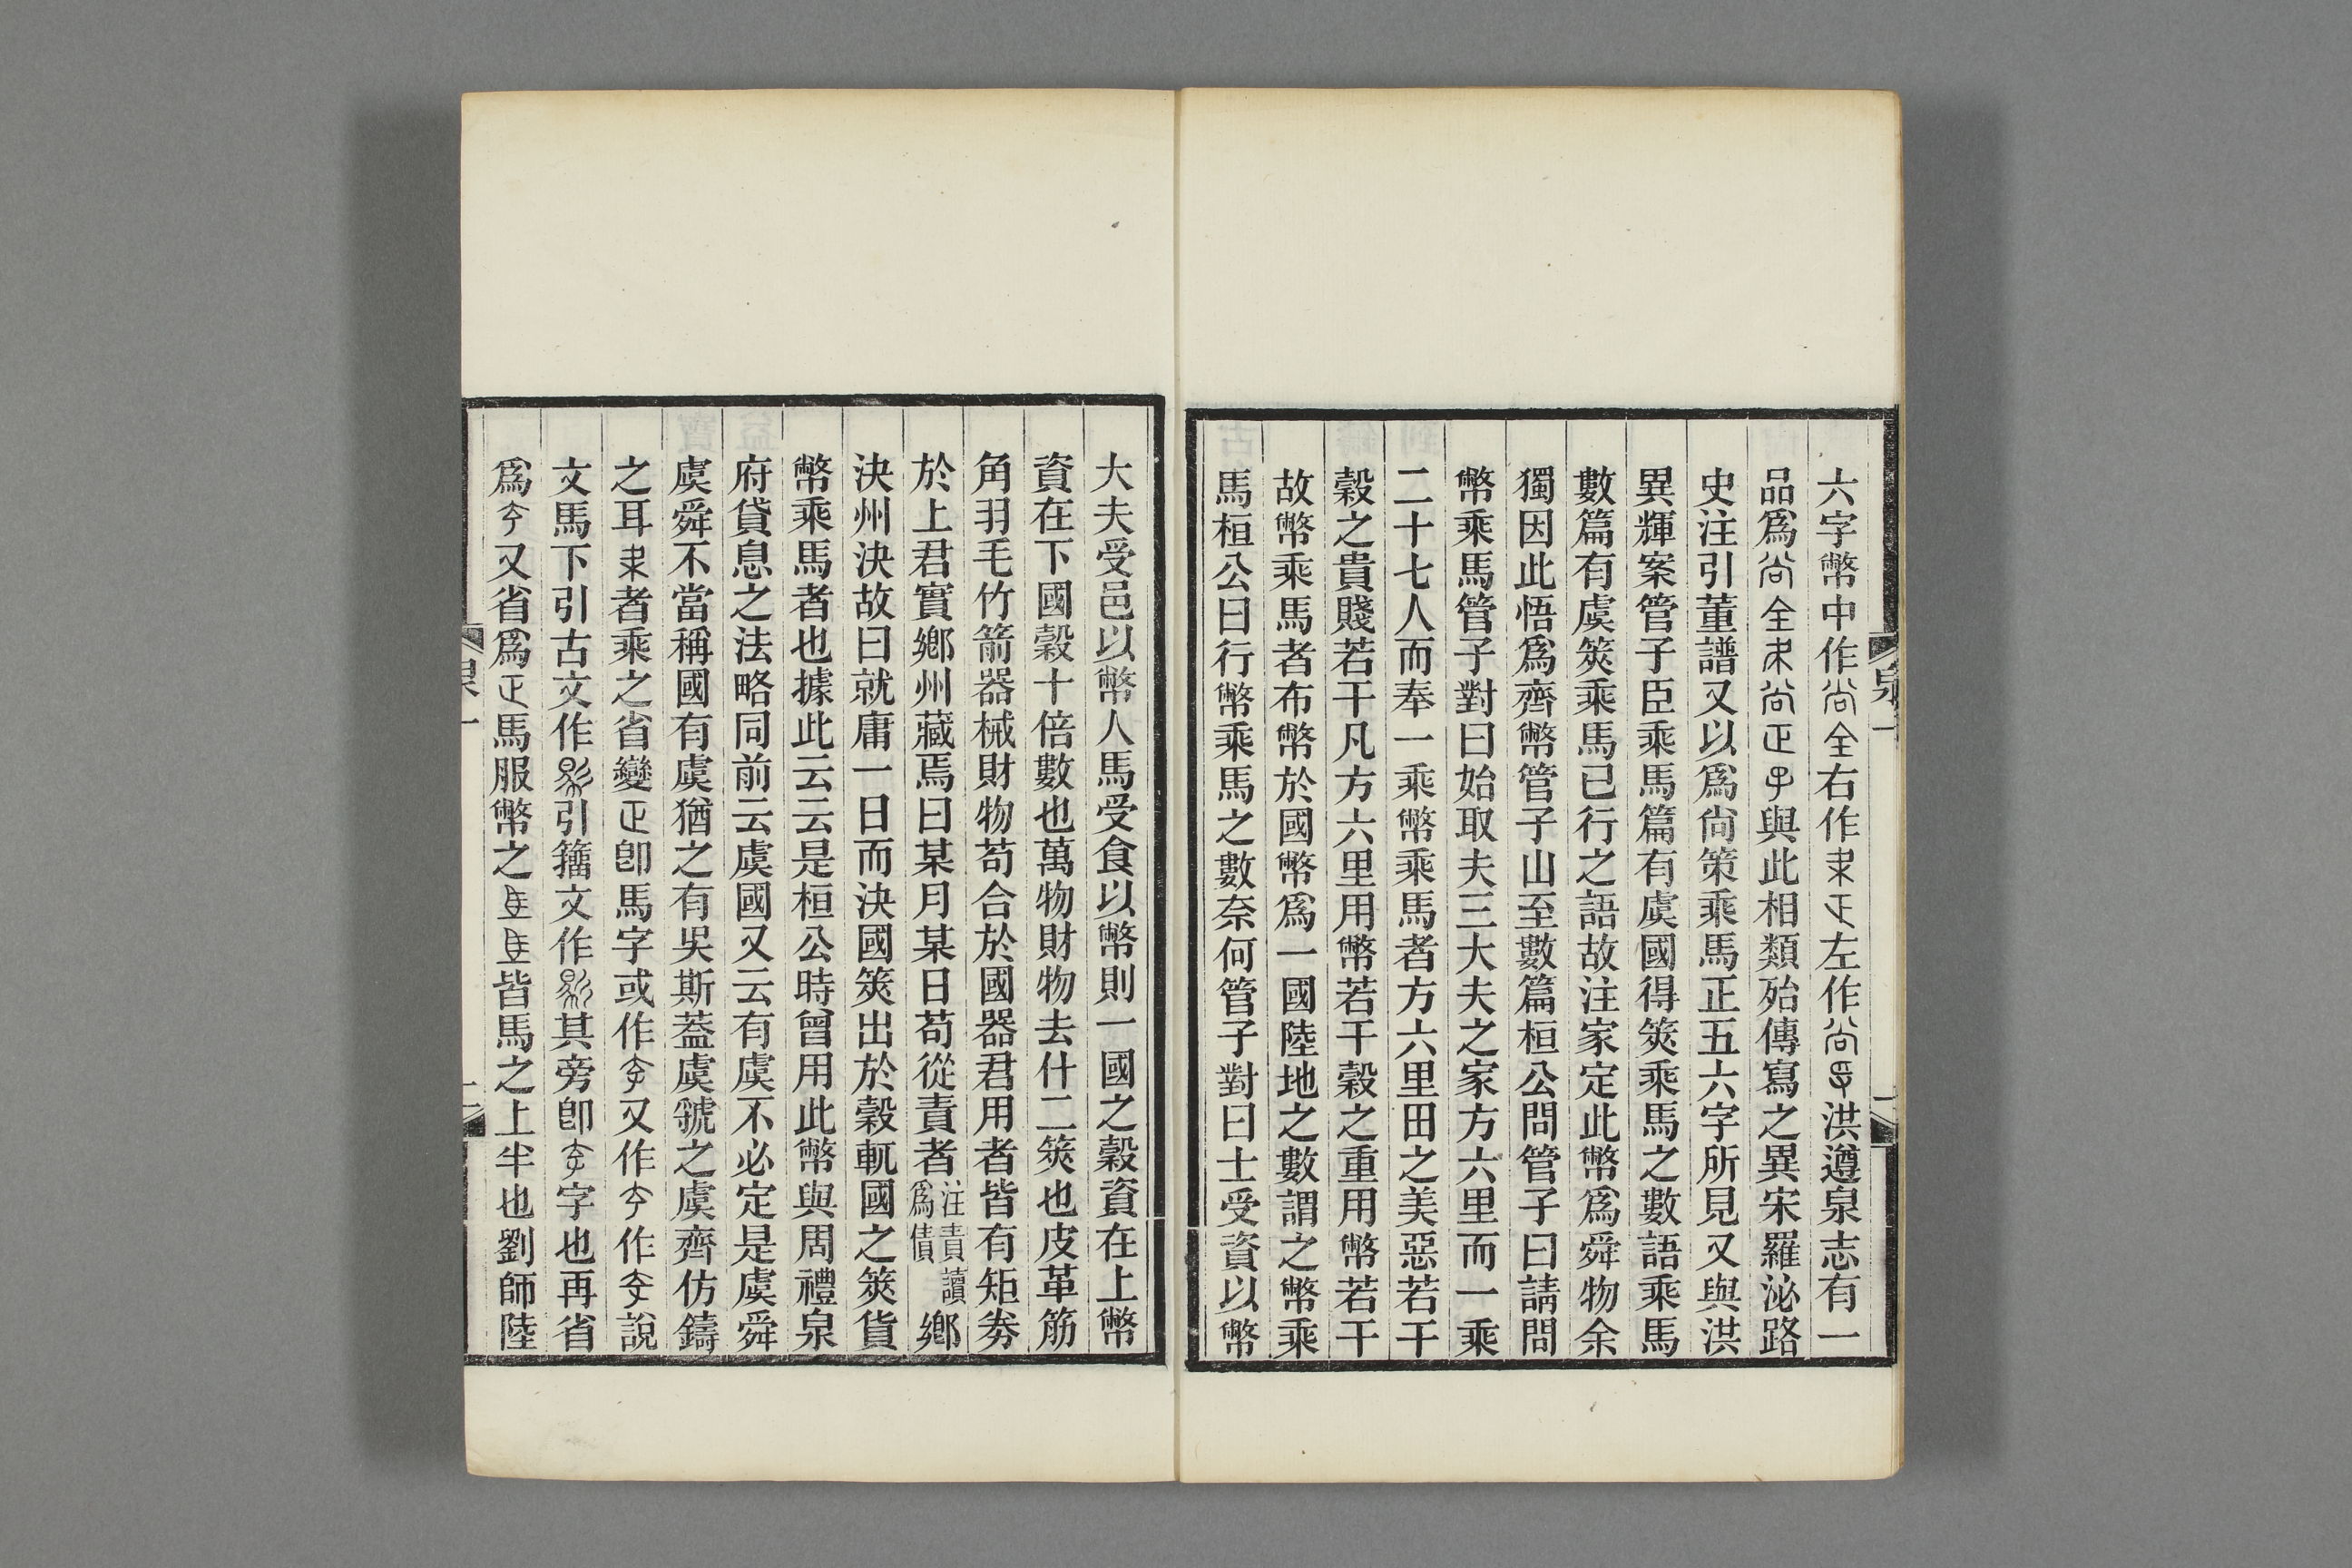 六字幣中作尙全右作洪遵泉志有一
品爲與此相類殆傳寫之異宋羅泌路
史注引董譜又以爲尙策乘馬正五六字所見又與洪
異輝案管子臣乘馬篇有虞國得筴乘馬之數語乘馬
數篇有虞筴乘馬已行之語故注家定此幣爲舜物余
獨因此悟爲齊幣管子山至數篇桓公問管子曰請問
幣乘馬管子對曰始取夫三大夫之家方六里而一乘
二十七人而奉一乘幣乘馬者方六里田之美惡若干
穀之貴賤若干凡方六里用幣若干穀之重用幣若干
故幣乘馬者布幣於國幣爲一國陸地之數謂之幣乘
馬桓公曰行幣乘馬之數奈何管子對曰士受資以幣
泉一
大夫受邑以幣人馬受食以幣則一國之穀資在上幣
資在下國穀十倍數也萬物財物去什二筴也皮革筋
角羽毛竹箭器械財物苟合於國器君用者皆有矩劵
於上君實鄉州藏焉曰某月某日苟從責者注責讀爲債鄉
決州決故曰就庸一日而決國筴出於穀軌國之筴貨
幣乘馬者也據此云云是桓公時曾用此幣與周禮泉
府貸息之法略同前云虞國又云有虞不必定是虞舜
虞舜不當稱國有虞猶之有吳斯蓋虞虢之虞齊仿鑄
之耳者乘之省變卽馬字或作又作作說
文馬下引古文作引籀文作其旁卽字也再省
爲又省爲馬服幣之皆馬之上半也劉師陸
泉一